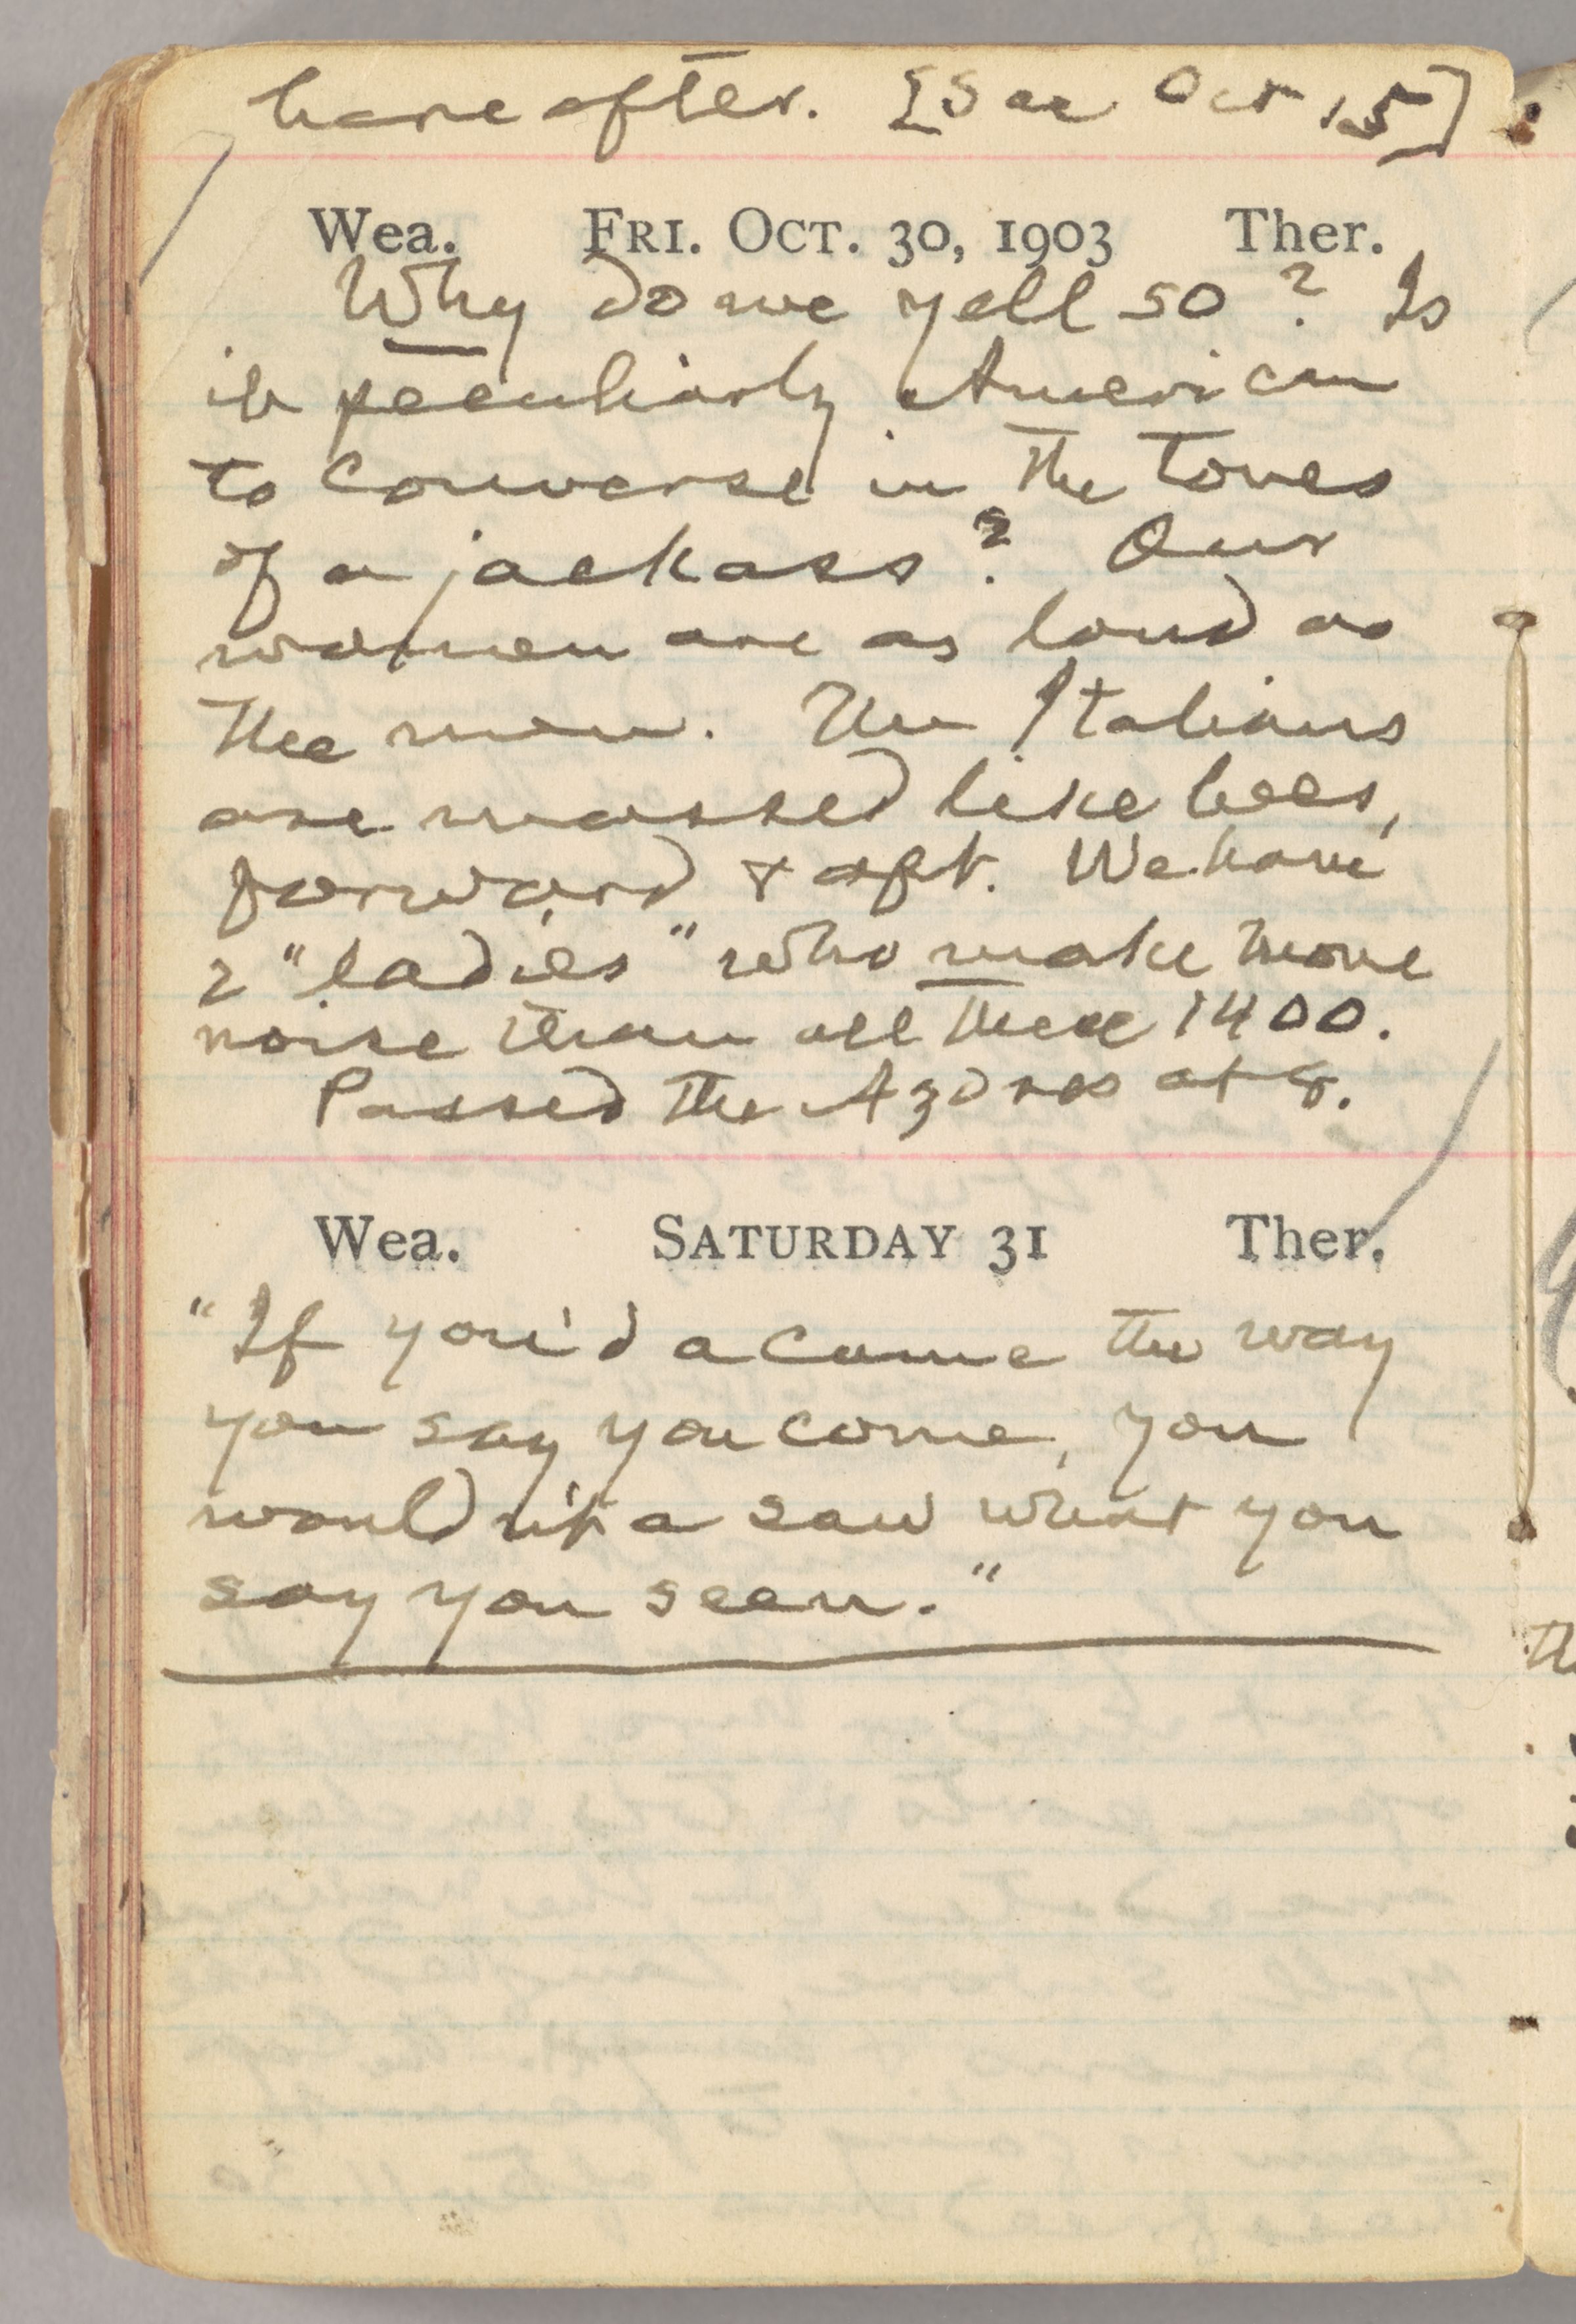 hereafter. [See Oct 15]
Wea. FRI. OCT. 30, 1903 Ther.
Why do we yell so? Is
it peculiarly American
to converse in the tones
of a jackass? Our
women are as loud as
the men. The Italians
are massed like bees,
forward & aft. We have
2 "ladies" who make more
noise than all these 1400.
Passed the Azores at 8.
Wea. SATURDAY 31 Ther.
"If you'd a came the way
you say you come, you
wouldn't a saw what you
say you seen."